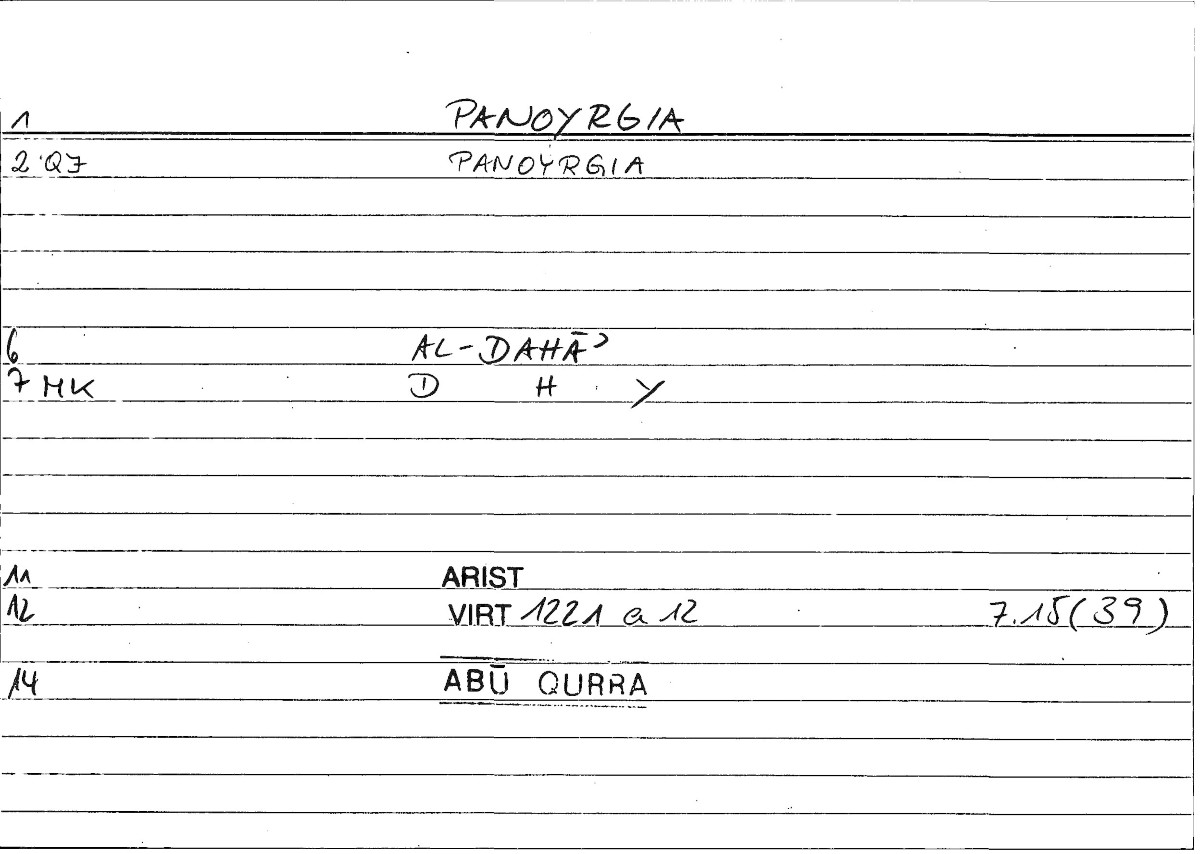 1 PANOYRGIA
2 QF PANOYRGIA
6 AL-DAHĀʾ
7 MK D H Y
11 ARIST
12 VIRT 1221 a 12 7.15(39)
14 ABŪ QURRA